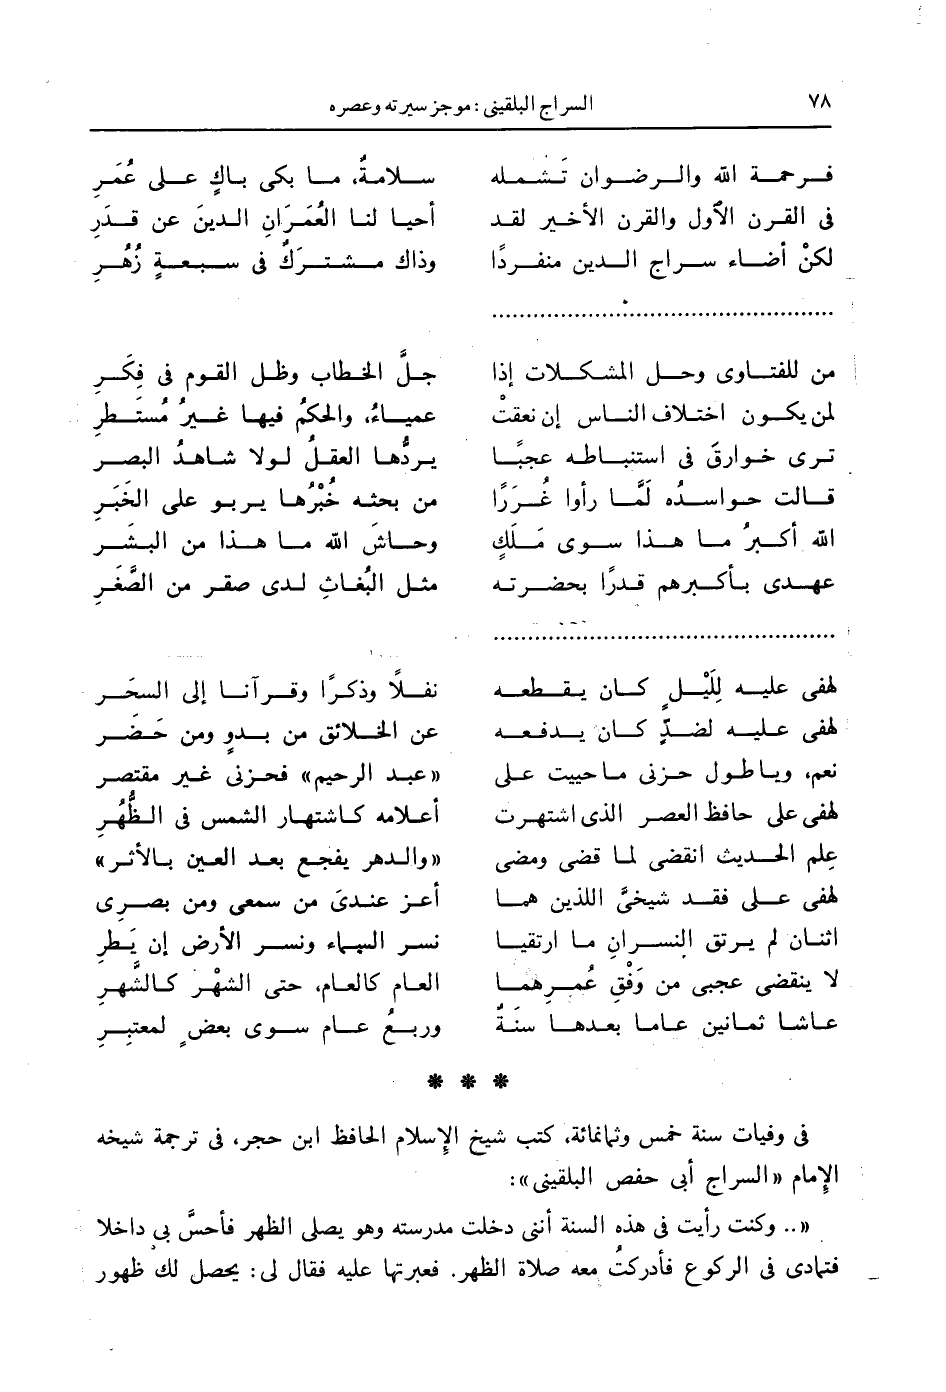 ٧٨
السراج البلقينى : موجز سيرته وعصره
فــرحمــة الله والــرضــوان تَـشـمـله ســلامـةٌ، مــا بكى بـاكٍ عــلى عُمَــرِ
فى القرن الأول والقرن الأخير لقد أحيا لنا العُمَرَانِ الدينَ عن قَــدَرِ
لكنْ أضـاء ســراج الــدين منفـردًا وذاك مـشـتـركٌ فى سـبـعـةٍ زُهُــرِ
..........................................................
من للفتـاوى وحـل المشـكـلات إذا جلَّ الخطاب وظل القوم فى فِكَــرِ
لمن يكــون اختـلاف النـاس إن نعقتْ عميـاءُ، والحكمُ فيها غـيرُ مُستَـطرِ
تـرى خـوارقَ فى استنبـاطـه عجبًـا يـردُّهـا العقـلُ لـولا شـاهـدُ البصـرِ
قـالت حـواسـدُه لَمَّـا رأوا غُـرَرًا من بحثـه خُبْرُهـا يـربـو على الخَبَـرِ
الله أكـبرُ مــا هـذا سـوى مَـلَكٍ وحـاشَ الله مـا هـذا من البشَـرِ
عهـدى بـأكـبرهم قـدرًا بحضـرتـه مثـل البُغاثِ لـدى صقـر من الصَّغَرِ
..........................................................
لهفى عليـه لِلَيْـلٍ كـان يـقـطعـه نفـلًا وذكـرًا وقـرآنـا إلى السحَـرِ
لهفى عليـه لضـدٍّ كـان يـدفـعـه عن الخـلائق من بـدوٍ ومن حَضَـرِ
نعم، ويـا طـول حـزنى مـا حييت على «عبـد الرحيم» فحـزنى غـير مقتصـرِ
لهفى على حافظ العصـر الذى اشتهرت أعـلامه كـاشتهـار الشمس فى الـظُّهُـرِ
عِلم الحـديث انقضى لما قضى ومضى «والـدهر يفجـع بعـد العـين بـالأثـر»
لهفى عـلى فقـد شيخىَّ اللذين همـا أعـز عنـدىَ من سمعى ومن بصـرِى
اثنـان لم يـرتق النسـرانِ مـا ارتقيـا نسـر السـماء ونسـر الأرض إن يَـطِرِ
لا ينقضى عجبى من وَفْقِ عُمـرِهمـا العـام كالعـام، حتى الشهْـر كـالشَّهـرِ
عـاشـا ثمـانين عـامـا بعـدهـا سَنَـةٌ وربـعُ عـام سـوى بعضٍ لمعتبـرِ
* * *
فى وفيات سنة خمس وثمانمائة، كتب شيخ الإسلام الحافظ ابن حجر، فى ترجمة شيخه
الإمام «السراج أبى حفص البلقينى»:
«.. وكنت رأيت فى هذه السنة أننى دخلت مدرسته وهو يصلى الظهر فأحسَّ بى داخلا
فتمادى فى الركوع فأدركتُ معه صلاة الظهر. فعبرتها عليه فقال لى: يحصل لك ظهور